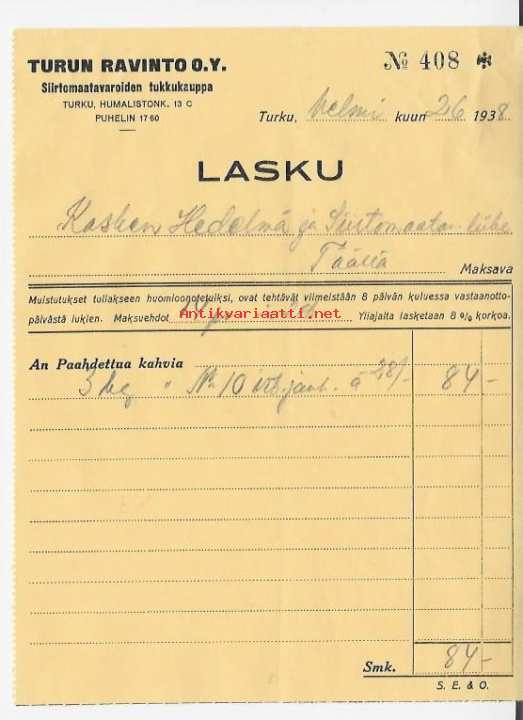 TURUN RAVINTO O.Y.
Siirtomaatavaroiden tukkukauppa
TURKU, HUMALISTONK. 13 C
PUHELIN 17 60
№ 408
Turku, helmi kuun 26 1938
LASKU
Kasken Hedelmä ja Siirtomaatav. liike
Täällä Maksava
Muistutukset tullakseen huomioonotetuiksi, ovat tehtävät viimeistään 8 päivän kuluessa vastaanotto-
päivästä lukien. Maksuehdot Yliajalta lasketaan 8 % korkoa.
Antikvariaatti.net
An Paahdettua kahvia
3 kg " No 10 à 28/- 84-
Smk. 84-
S. E. & O.